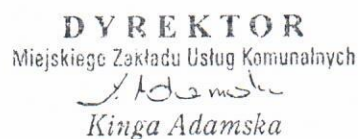 DYREKTOR
Miejskiego Zakładu Usług Komunalnych
Kinga Adamska